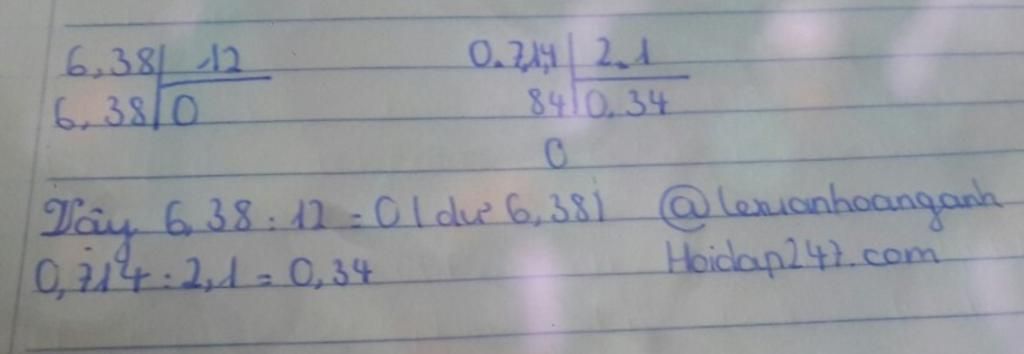 6,38 12
6,38 0
0.714 2.1
84 0.34
0
Vậy 6,38 : 12 = 0 (dư 6,38)
0,714 : 2,1 = 0,34
@lexuanhoanganh
Hoidap247.com